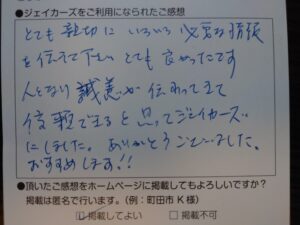 ●ジェイカーズをご利用になられたご感想
とても親切に いろいろ 必要な情報
を伝えて下さい とても良かったです
人となり 誠意が 伝わってきて
信頼できると思ってジェイカーズ
にしました。ありがとうございました。
おすすめします!!
●頂いたご感想をホームページに掲載してもよろしいですか?
掲載は匿名で行います。(例:町田市 K 様)
掲載してよい 掲載不可